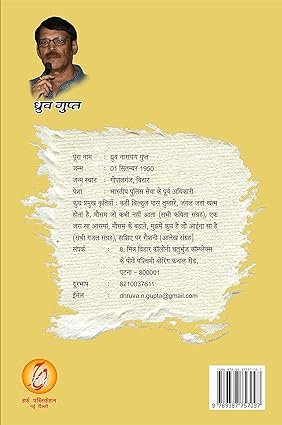 ध्रुव गुप्त
पूरा नाम : ध्रुव नारायण गुप्त
जन्म : 01 सितम्बर 1950
जन्म स्थान : गोपालगंज, बिहार
पेशा : भारतीय पुलिस सेवा के पूर्व अधिकारी
कुछ प्रमुख कृतियाँ : कहीं बिल्कुल पास तुम्हारे, जंगल जहां खत्म
होता है, मौसम जो कभी नहीं आता (सभी कविता संग्रह), एक
जरा सा आसमां, मौसम के बहाने, मुझमें कुछ है जो आईना सा है
(सभी गजल संग्रह), हाशिए पर रौशनी (आलेख संग्रह)
संपर्क : 8, मित्र विहार कॉलोनी चतुर्भुज कॉम्प्लेक्स
के पीछे पश्चिमी बोरिंग कनाल रोड,
पटना - 800001
दूरभाष : 8210037611
ईमेल : dhruva.n.gupta@gmail.com
हर्फ पब्लिकेशन
नई दिल्ली
9789387757097